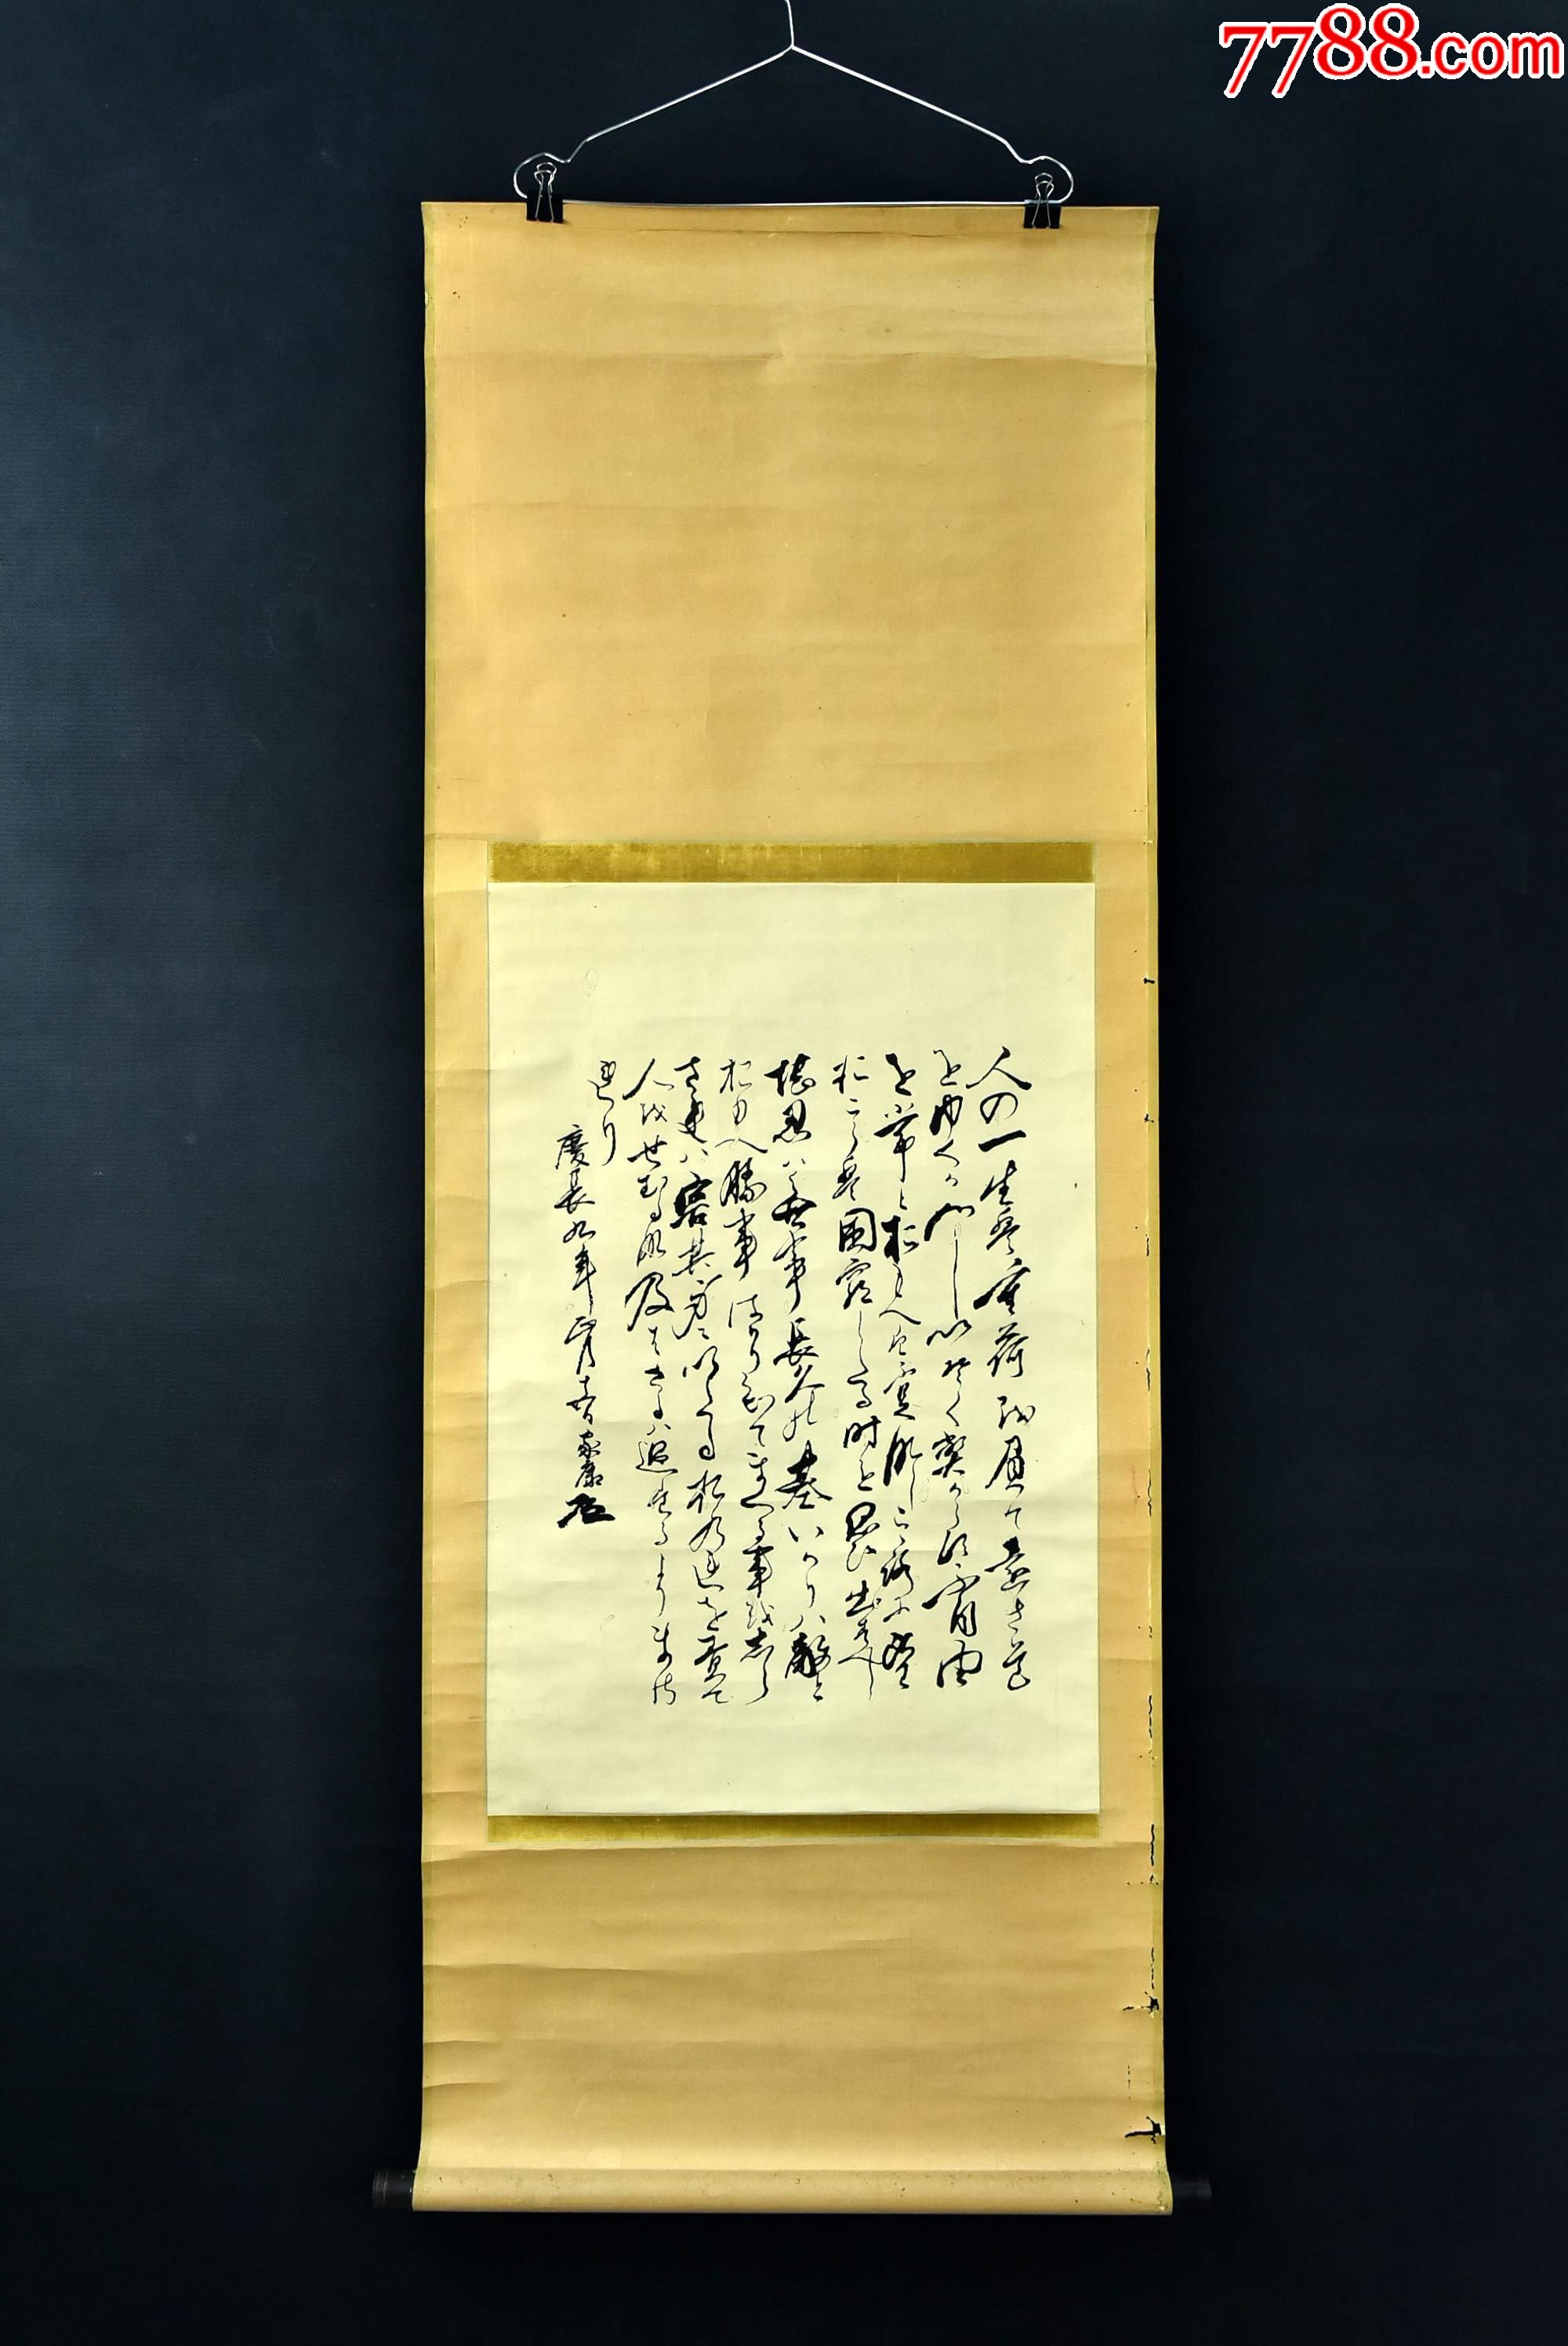 7788.com
人の一生は重荷を負て遠き道
をゆくか如しいそくへからす不自由
を常とおもへは不足なしこころに望
おこらは困窮したる時を思ひ出すへし
堪忍は無事長久の基いかりは敵と
おもへ勝事はかり知てまくる事をしら
されは害其身にいたるおのれを責て
人をせむるな及はさるは過たるよりまさ
れり
慶長九年正月十五日 家康